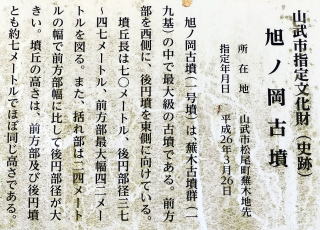 山武市指定文化財(史跡)
旭ノ岡古墳
所在地 山武市松尾町蕪木地先
指定年月日 平成26年3月26日
旭ノ岡古墳(一号墳)は、蕪木古墳群(二
九基)の中で最大級の古墳である。前方
部を西側に、後円墳を東側に向けている。
墳丘長は七〇メートル、後円部径三七
~四七メートル、前方部最大幅四二メー
トルを図る。また、括れ部は二四メート
ルの幅で前方部幅に比して後円部径が大
きい。墳丘の高さは、前方部及び後円墳
とも約七メートルでほぼ同じ高さである。